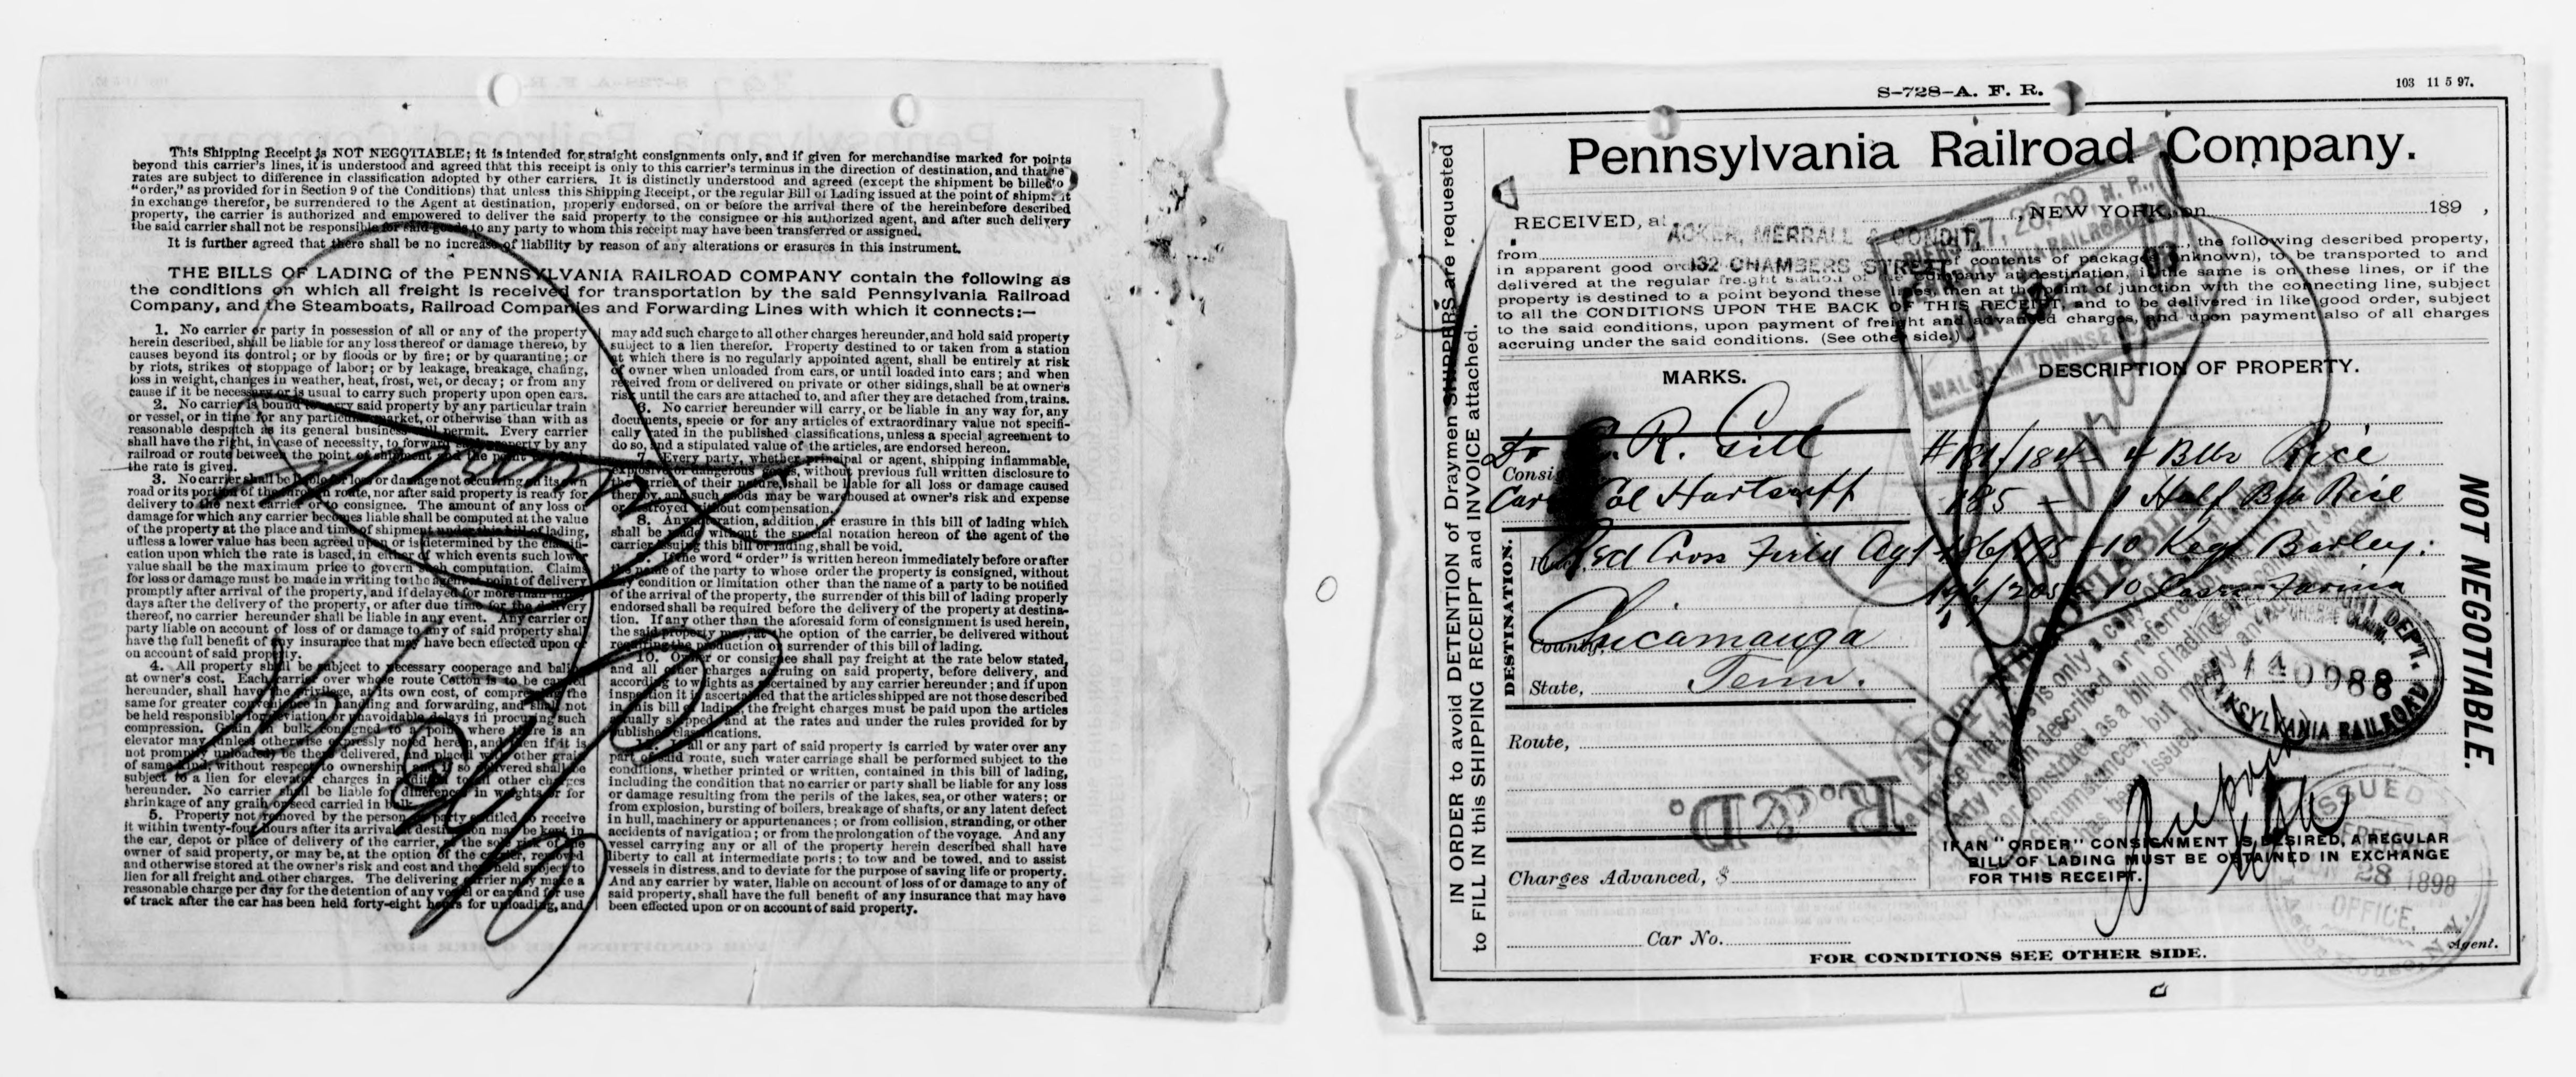 This Shipping Receipt is NOT NEGOTIABLE; it is intended for straight consignments only, and if given for merchandise marked for points
beyond this carrier's lines, it is understood and agreed that this receipt is only to this carrier's terminus in the direction of destination, and that the
rates are subject to difference in classification adopted by other carriers. It is distinctly understood and agreed (except the shipment be billed to
"order," as provided for in Section 9 of the Conditions) that unless this Shipping Receipt, or the regular Bill of Lading issued at the point of shipment
in exchange therefor, be surrendered to the Agent at destination, properly endorsed, on or before the arrival there of the hereinbefore described
property, the carrier is authorized and empowered to deliver the said property to the consignee or his authorized agent, and after such delivery
the said carrier shall not be responsible for said goods to any party to whom this receipt may have been transferred or assigned.
It is further agreed that there shall be no increase of liability by reason of any alterations or erasures in this instrument.
THE BILLS OF LADING of the PENNSYLVANIA RAILROAD COMPANY contain the following as
the conditions on which all freight is received for transportation by the said Pennsylvania Railroad
Company, and the Steamboats, Railroad Companies and Forwarding Lines with which it connects:—
1. No carrier or party in possession of all or any of the property
herein described, shall be liable for any loss thereof or damage thereto, by
causes beyond its control; or by floods or by fire; or by quarantine; or
by riots, strikes or stoppage of labor; or by leakage, breakage, chafing,
loss in weight, changes in weather, heat, frost, wet, or decay; or from any
cause if it be necessary or is usual to carry such property upon open cars.
2. No carrier is bound to carry said property by any particular train
or vessel, or in time for any particular market, or otherwise than with as
reasonable despatch as its general business will permit. Every carrier
shall have the right, in case of necessity, to forward said property by any
railroad or route between the point of shipment and the point to which
the rate is given.
3. No carrier shall be liable for loss or damage not occurring on its own
road or its portion of the through route, nor after said property is ready for
delivery to the next carrier or to consignee. The amount of any loss or
damage for which any carrier becomes liable shall be computed at the value
of the property at the place and time of shipment under this bill of lading,
unless a lower value has been agreed upon or is determined by the classifi-
cation upon which the rate is based, in either of which events such lower
value shall be the maximum price to govern such computation. Claims
for loss or damage must be made in writing to the agent at point of delivery
promptly after arrival of the property, and if delayed for more than thirty
days after the delivery of the property, or after due time for the delivery
thereof, no carrier hereunder shall be liable in any event. Any carrier or
party liable on account of loss of or damage to any of said property shall
have the full benefit of any insurance that may have been effected upon or
on account of said property.
4. All property shall be subject to necessary cooperage and baling
at owner's cost. Each carrier over whose route Cotton is to be carried
hereunder, shall have the privilege, at its own cost, of compressing the
same for greater convenience in handling and forwarding, and shall not
be held responsible for deviation or unavoidable delays in procuring such
compression. Grain in bulk consigned to a point where there is an
elevator may (unless otherwise expressly noted herein, and then if it is
not promptly unloaded) be there delivered, and placed with other grain
of same kind, without respect to ownership, and if so delivered shall be
subject to a lien for elevator charges in addition to all other charges
hereunder. No carrier shall be liable for differences in weights or for
shrinkage of any grain or seed carried in bulk.
5. Property not removed by the person or party entitled to receive
it within twenty-four hours after its arrival at destination may be kept in
the car, depot or place of delivery of the carrier, at the sole risk of the
owner of said property, or may be, at the option of the carrier, removed
and otherwise stored at the owner's risk and cost and there held subject to
lien for all freight and other charges. The delivering carrier may make a
reasonable charge per day for the detention of any vessel or car and for use
of track after the car has been held forty-eight hours for unloading, and
may add such charge to all other charges hereunder, and hold said property
subject to a lien therefor. Property destined to or taken from a station
at which there is no regularly appointed agent, shall be entirely at risk
of owner when unloaded from cars, or until loaded into cars; and when
received from or delivered on private or other sidings, shall be at owner's
risk until the cars are attached to, and after they are detached from, trains.
6. No carrier hereunder will carry, or be liable in any way for, any
documents, specie or for any articles of extraordinary value not specifi-
cally rated in the published classifications, unless a special agreement to
do so, and a stipulated value of the articles, are endorsed hereon.
7. Every party, whether principal or agent, shipping inflammable,
explosive or dangerous goods, without previous full written disclosure to
the carrier of their nature, shall be liable for all loss or damage caused
thereby, and such goods may be warehoused at owner's risk and expense
or destroyed without compensation.
8. Any alteration, addition, or erasure in this bill of lading which
shall be made without the special notation hereon of the agent of the
carrier issuing this bill of lading, shall be void.
9. If the word "order" is written hereon immediately before or after
the name of the party to whose order the property is consigned, without
any condition or limitation other than the name of a party to be notified
of the arrival of the property, the surrender of this bill of lading properly
endorsed shall be required before the delivery of the property at destina-
tion. If any other than the aforesaid form of consignment is used herein,
the said property may, at the option of the carrier, be delivered without
requiring the production or surrender of this bill of lading.
10. Owner or consignee shall pay freight at the rate below stated,
and all other charges accruing on said property, before delivery, and
according to weights as ascertained by any carrier hereunder; and if upon
inspection it is ascertained that the articles shipped are not those described
in this bill of lading, the freight charges must be paid upon the articles
actually shipped, and at the rates and under the rules provided for by
published classifications.
11. If all or any part of said property is carried by water over any
part of said route, such water carriage shall be performed subject to the
conditions, whether printed or written, contained in this bill of lading,
including the condition that no carrier or party shall be liable for any loss
or damage resulting from the perils of the lakes, sea, or other waters; or
from explosion, bursting of boilers, breakage of shafts, or any latent defect
in hull, machinery or appurtenances; or from collision, stranding, or other
accidents of navigation; or from the prolongation of the voyage. And any
vessel carrying any or all of the property herein described shall have
liberty to call at intermediate ports; to tow and be towed, and to assist
vessels in distress, and to deviate for the purpose of saving life or property.
And any carrier by water, liable on account of loss of or damage to any of
said property, shall have the full benefit of any insurance that may have
been effected upon or on account of said property.
S-728-A. F. R.
103 11 5 97.
IN ORDER to avoid DETENTION of Draymen SHIPPERS are requested
to FILL IN this SHIPPING RECEIPT and INVOICE attached.
Pennsylvania Railroad Company.
RECEIVED, at , NEW YORK, on 189 ,
ACKER, MERRALL & CONDIT,
from , the following described property,
132 CHAMBERS STREET
in apparent good order of contents of packages unknown), to be transported to and
delivered at the regular freight station of the Company at destination, if the same is on these lines, or if the
property is destined to a point beyond these lines, then at the point of junction with the connecting line, subject
to all the CONDITIONS UPON THE BACK OF THIS RECEIPT, and to be delivered in like good order, subject
to the said conditions, upon payment of freight and advanced charges, and upon payment also of all charges
accruing under the said conditions. (See other side.)
PIERS 27, 28, 29, N. R.,
PENNSYLVANIA RAILROAD
MALCOLM TOWNSEND
MARKS.
DESCRIPTION OF PROPERTY.
To R. Gill
#181/184 4 Bbls Rice
Care Col Hartsuff
185 - 1 Half Bbl Rice
Red Cross Field Agt
186/195 - 10 Kegs Barley.
196/205 - 10 Cases Farina
DESTINATION.
Chicamauga
County,
State, Tenn.
Route,
R & D.
NOT NEGOTIABLE
FREIGHT DEPT.
140988
PENNSYLVANIA RAILROAD
NOT NEGOTIABLE.
Charges Advanced, $
IF AN "ORDER" CONSIGNMENT IS DESIRED, A REGULAR
BILL OF LADING MUST BE OBTAINED IN EXCHANGE
FOR THIS RECEIPT.
ISSUED
JUN 28 1898
OFFICE.
Car No.
Agent.
FOR CONDITIONS SEE OTHER SIDE.